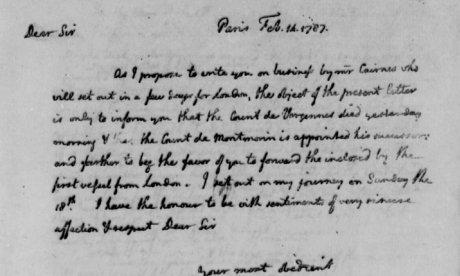 Paris Feb. 14. 1787.
Dear Sir
As I propose to write you on business by mr Cairnes who
will set out in a few days for London, the object of the present letter
is only to inform you that the Count de Vergennes died yesterday
morning & that the Count de Montmorin is appointed his successor:
and further to beg the favor of you to forward the inclosed by the
first vessel from London. I set out on my journey on Sunday the
18th. I have the honour to be with sentiments of very sincere
affection & respect Dear Sir
Your most obedient